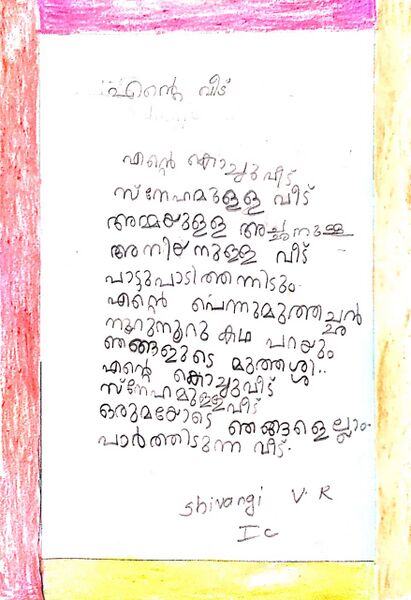 എന്റെ വീട്
എന്റെ കൊച്ചുവീട്
സ്നേഹമുള്ള വീട്
അമ്മയുള്ള അച്ഛനുള്ള
അനിയനുള്ള വീട്
പാട്ടുപാടിത്തന്നിടും
എന്റെ പെന്നുമുത്തച്ഛൻ
നൂറുനൂറു കഥ പറയും
ഞങ്ങളുടെ മുത്തശ്ശി..
എന്റെ കൊച്ചുവീട്
സ്നേഹമുള്ളവീട്
ഒരുമയോടെ ഞങ്ങളെല്ലാം.
പാർത്തിടുന്ന വീട്.
Shivangi V.R
I C